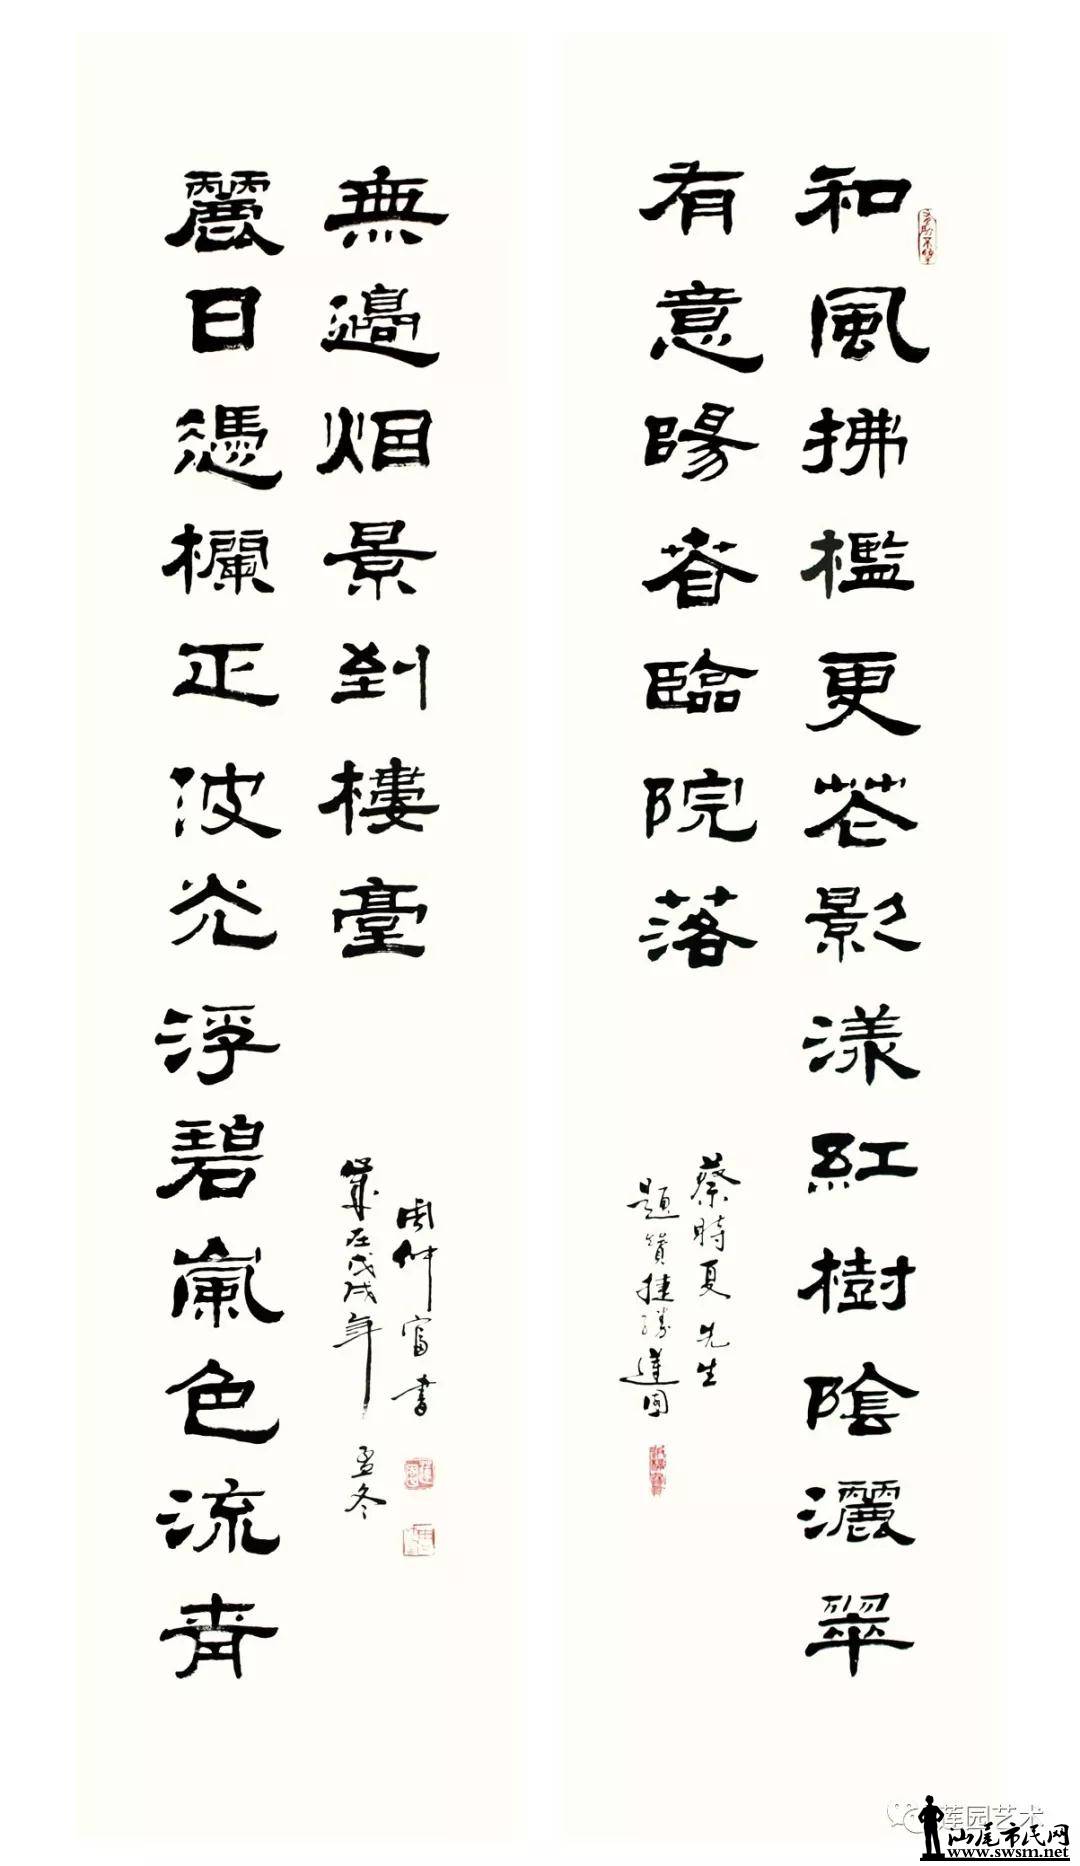 和風拂檻更花影漾紅樹陰灑翠
有意暘春臨院落
蔡時夏先生
題贊捷勝蓮園
麗日憑欄正波光浮碧嵐色流青
無邊烟景到樓臺
歲在戊戌年 孟冬
周仲富書
莲园艺术
汕尾市民网
www.swsm.net